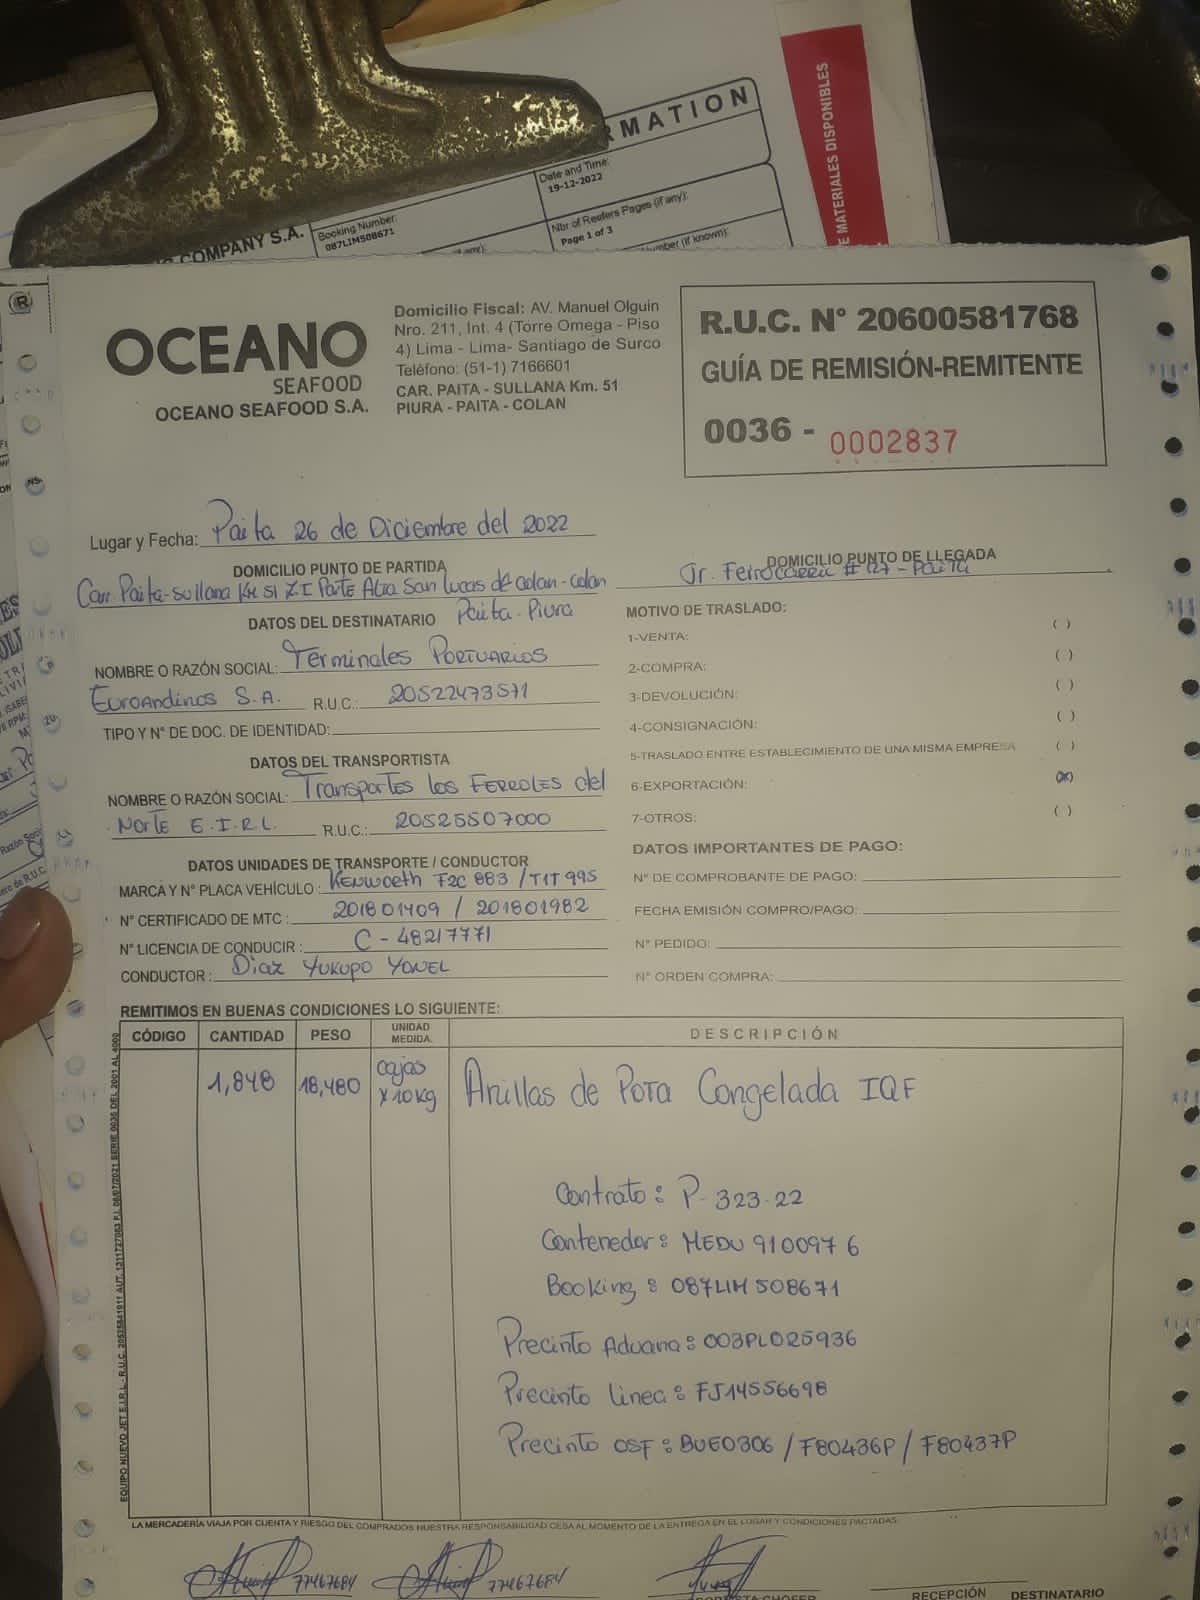 RMATION
Date and Time:
19-12-2022
Booking Number:
087LIM508671
COMPANY S.A.
Nbr of Reefers Pages (if any):
Page 1 of 3
E MATERIALES DISPONIBLES
OCEANO
SEAFOOD
OCEANO SEAFOOD S.A.
Domicilio Fiscal: AV. Manuel Olguin
Nro. 211, Int. 4 (Torre Omega - Piso
4) Lima - Lima- Santiago de Surco
Teléfono: (51-1) 7166601
CAR. PAITA - SULLANA Km. 51
PIURA - PAITA - COLAN
R.U.C. N° 20600581768
GUÍA DE REMISIÓN-REMITENTE
0036 - 0002837
Lugar y Fecha: Paita 26 de Diciembre del 2022
DOMICILIO PUNTO DE PARTIDA
Carr. Paita-Sullana KM 51 Z.I Parte Alta San Lucas de Colan-Colan
Paita-Piura
DOMICILIO PUNTO DE LLEGADA
Jr. Ferrocarril # 127 - Paita
DATOS DEL DESTINATARIO
NOMBRE O RAZÓN SOCIAL: Terminales Portuarios
Euroandinos S.A. R.U.C.: 20522473571
TIPO Y N° DE DOC. DE IDENTIDAD:
DATOS DEL TRANSPORTISTA
NOMBRE O RAZÓN SOCIAL: Transportes los Ferroles del
Norte E.I.R.L. R.U.C.: 20525507000
DATOS UNIDADES DE TRANSPORTE / CONDUCTOR
MARCA Y N° PLACA VEHÍCULO: Kenworth F2C 883 / T1T 995
N° CERTIFICADO DE MTC: 201801409 / 201801982
N° LICENCIA DE CONDUCIR: C - 48217771
CONDUCTOR: Diaz Yukupo Yonel
MOTIVO DE TRASLADO:
1-VENTA: ( )
2-COMPRA: ( )
3-DEVOLUCIÓN: ( )
4-CONSIGNACIÓN: ( )
5-TRASLADO ENTRE ESTABLECIMIENTO DE UNA MISMA EMPRESA ( )
6-EXPORTACIÓN: (x)
7-OTROS: ( )
DATOS IMPORTANTES DE PAGO:
N° DE COMPROBANTE DE PAGO:
FECHA EMISIÓN COMPRO/PAGO:
N° PEDIDO:
N° ORDEN COMPRA:
REMITIMOS EN BUENAS CONDICIONES LO SIGUIENTE:
CÓDIGO CANTIDAD PESO UNIDAD MEDIDA. DESCRIPCIÓN
1,848 18,480 cajas x 10 kg Anillas de Pota Congelada IQF
Contrato: P-323-22
Contenedor: MEDU 910097 6
Booking: 087LIM508671
Precinto Aduana: 003PL025936
Precinto linea: FJ14556698
Precinto OSF: BUE0306 / F80436P / F80437P
EQUIPO NUEVO JET E.I.R.L - R.U.C. 20525841911 AUT. 1311727063 F.I. 08/07/2021 SERIE 0036 DEL 2001 AL 4000
LA MERCADERÍA VIAJA POR CUENTA Y RIESGO DEL COMPRADOS NUESTRA RESPONSABILIDAD CESA AL MOMENTO DE LA ENTREGA EN EL LUGAR Y CONDICIONES PACTADAS.
77467684
77467684
RECEPCIÓN DESTINATARIO